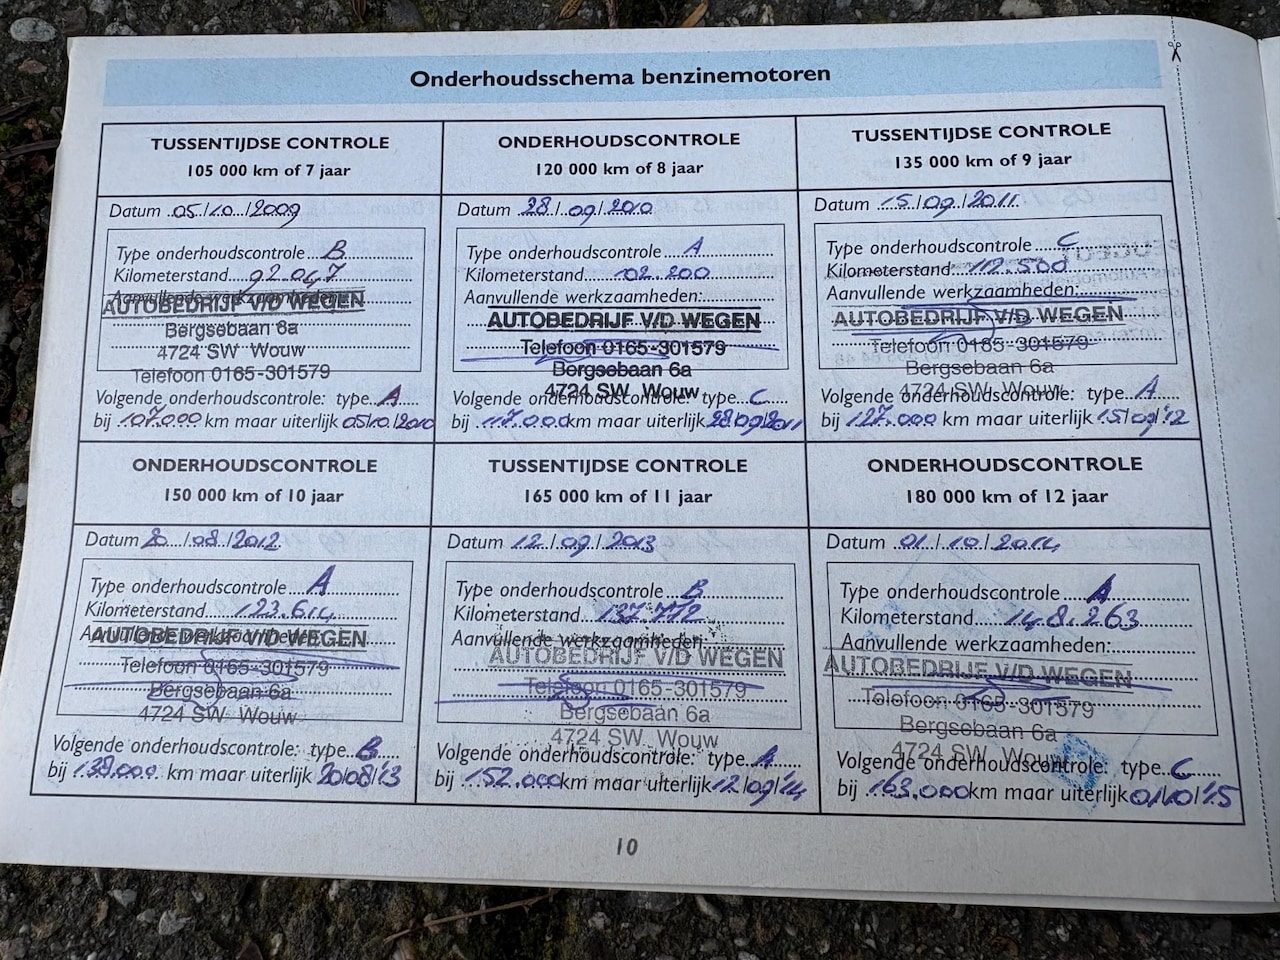 Onderhoudsschema benzinemotoren
TUSSENTIJDSE CONTROLE
105 000 km of 7 jaar
Datum 05/10/2009
Type onderhoudscontrole B
Kilometerstand 92.047
Aanvullende werkzaamheden:
AUTOBEDRIJF V/D WEGEN
Bergsebaan 6a
4724 SW Wouw
Telefoon 0165-301579
Volgende onderhoudscontrole: type A
bij 107.000 km maar uiterlijk 05/10/2010
ONDERHOUDSCONTROLE
120 000 km of 8 jaar
Datum 28/09/2010
Type onderhoudscontrole A
Kilometerstand 102.200
Aanvullende werkzaamheden:
AUTOBEDRIJF V/D WEGEN
Telefoon 0165-301579
Bergsebaan 6a
4724 SW Wouw
Volgende onderhoudscontrole: type C
bij 117.000 km maar uiterlijk 28/09/2011
TUSSENTIJDSE CONTROLE
135 000 km of 9 jaar
Datum 15/09/2011
Type onderhoudscontrole C
Kilometerstand 112.500
Aanvullende werkzaamheden:
AUTOBEDRIJF V/D WEGEN
Telefoon 0165-301579
Bergsebaan 6a
4724 SW Wouw
Volgende onderhoudscontrole: type A
bij 127.000 km maar uiterlijk 15/09/'12
ONDERHOUDSCONTROLE
150 000 km of 10 jaar
Datum 20/08/2012
Type onderhoudscontrole A
Kilometerstand 123.614
Aanvullende werkzaamheden:
AUTOBEDRIJF V/D WEGEN
Telefoon 0165-301579
Bergsebaan 6a
4724 SW Wouw
Volgende onderhoudscontrole: type B
bij 138.000 km maar uiterlijk 20/08/'13
TUSSENTIJDSE CONTROLE
165 000 km of 11 jaar
Datum 12/09/2013
Type onderhoudscontrole B
Kilometerstand 137.772
Aanvullende werkzaamheden:
AUTOBEDRIJF V/D WEGEN
Telefoon 0165-301579
Bergsebaan 6a
4724 SW Wouw
Volgende onderhoudscontrole: type A
bij 152.000 km maar uiterlijk 12/09/'14
ONDERHOUDSCONTROLE
180 000 km of 12 jaar
Datum 01/10/2014
Type onderhoudscontrole A
Kilometerstand 148.263
Aanvullende werkzaamheden:
AUTOBEDRIJF V/D WEGEN
Telefoon 0165-301579
Bergsebaan 6a
4724 SW Wouw
Volgende onderhoudscontrole: type C
bij 163.000 km maar uiterlijk 01/10/'15
10